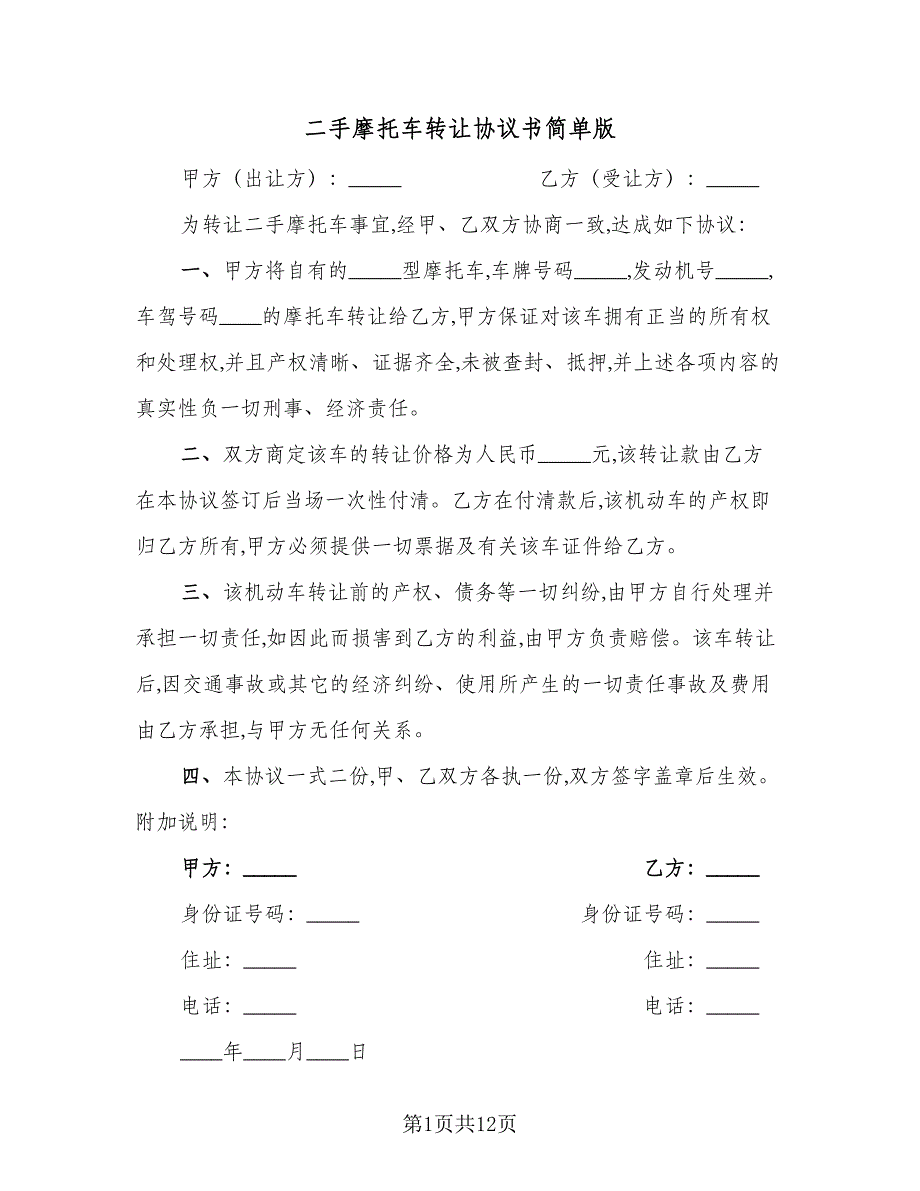 二手摩托车转让协议书简单版
甲方（出让方）：_____ 乙方（受让方）：_____
为转让二手摩托车事宜,经甲、乙双方协商一致,达成如下协议:
一、甲方将自有的_____型摩托车,车牌号码_____,发动机号_____,
车驾号码____的摩托车转让给乙方,甲方保证对该车拥有正当的所有权
和处理权,并且产权清晰、证据齐全,未被查封、抵押,并上述各项内容的
真实性负一切刑事、经济责任。
二、双方商定该车的转让价格为人民币_____元,该转让款由乙方
在本协议签订后当场一次性付清。乙方在付清款后,该机动车的产权即
归乙方所有,甲方必须提供一切票据及有关该车证件给乙方。
三、该机动车转让前的产权、债务等一切纠纷,由甲方自行处理并
承担一切责任,如因此而损害到乙方的利益,由甲方负责赔偿。该车转让
后,因交通事故或其它的经济纠纷、使用所产生的一切责任事故及费用
由乙方承担,与甲方无任何关系。
四、本协议一式二份,甲、乙双方各执一份,双方签字盖章后生效。
附加说明:
甲方：_____ 乙方：_____
身份证号码：_____ 身份证号码：_____
住址：_____ 住址：_____
电话：_____ 电话：_____
____年____月____日
第1页共12页